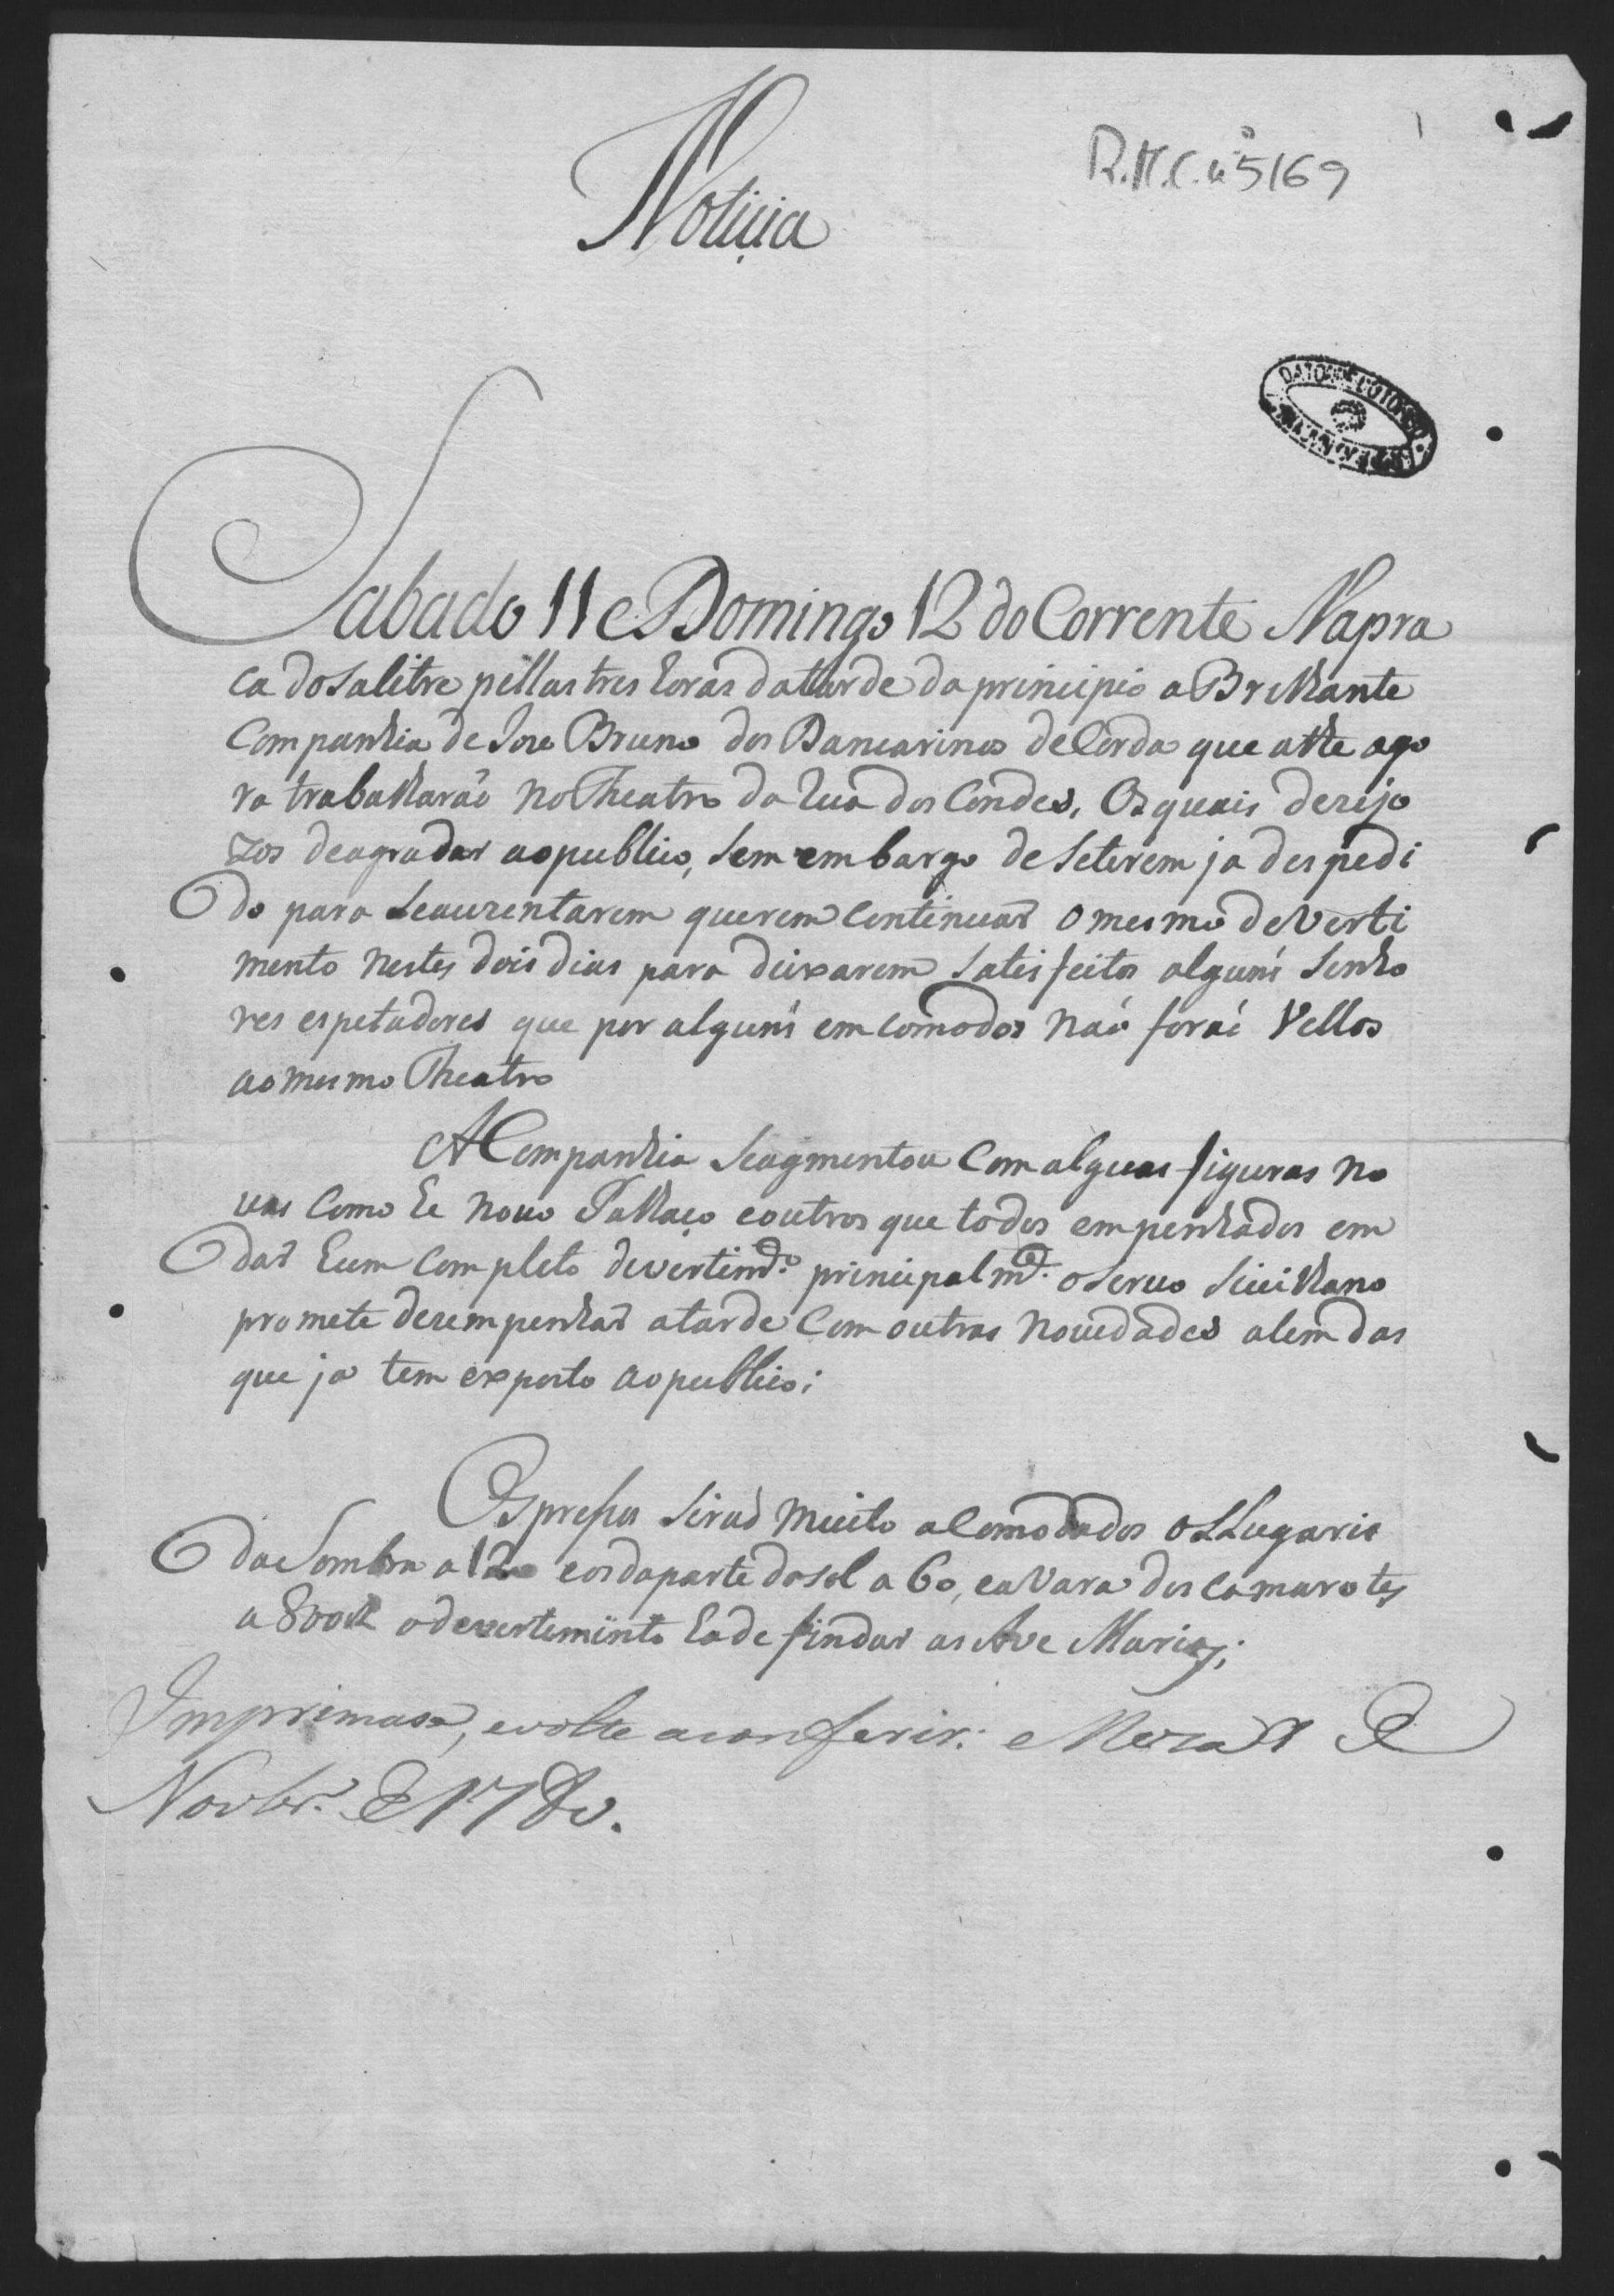 Noticia
R.M.C. nº 5169
Sabado 11 e Domingo 12 do Corrente Na pra
ca do Salitre pellas tres horas da tarde da principio a Brilhante
Companhia de Joze Bruno dos Dancarinos de Corda que athe ago
ra trabalharaõ no Theatro da Rua dos Condes, Os quais dezejo
zos de agradar ao publico, sem embargo de se terem ja despedi
do para se auzentarem querem continuar o mesmo deverti
mento nestes dois dias para deixarem satisfeitos alguns senho
res espetadores que por alguns emcomodos naõ foraõ vellos
ao mesmo Theatro
A Companhia se agmentou com alguas figuras no
vas como he novo Palhaço e outros que todos empenhados em
dar hum completo devertimto. principalmte. o Servo Sivilhano
promete dezempenhar a tarde com outras novedades alem das
que ja tem exposto ao publico;
Os presos seraõ muito acomodados os Lugares
da Sombra a 120 e os da parte do sol a 60, e a vara dos camarotes
a 800 R o devertimento ha de findar as Ave Marias;
Imprimase, e volte a conferir. Meza de
Novbr.º de 1780.